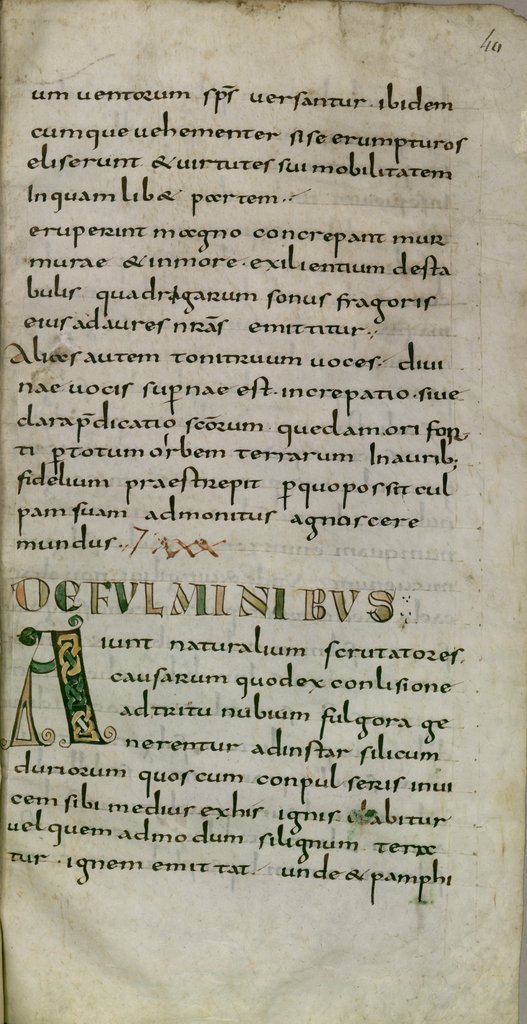 40
um uentorum sp̄s uersantur · ibidem
cumque uehementer sise erumpturos
eliserunt & uirtutes sui mobilitatem
Inquam lib& partem ·,·
eruperint magno concrepant mur
murae & inmore · exilientium desta
bulis quadrigarum sonus fragoris
eius ad aures nr̄ās emittitur ·,·
Alias autem tonitruum uoces · diui
nae uocis suꝑnae est · increpatio · siue
clara p̄dicatio sc̄orum · qued amori for
ti ꝑ totum orbem terrarum In aurib;
fidelium praestrepit ꝑ quo possit cul
pam suam admonitus agnoscere
mundus ·,·
DE FULMINIBVS
Aiunt naturalium scrutatores.
causarum quod ex conlisione
ad tritu nubium fulgora ge
nerentur ad instar silicum
duriorum quos cum conpulseris inui
cem sibi medius ex his ignis elabitur
uel quem admodum si lignum terra
tur · ignem emittat · unde & pamphi